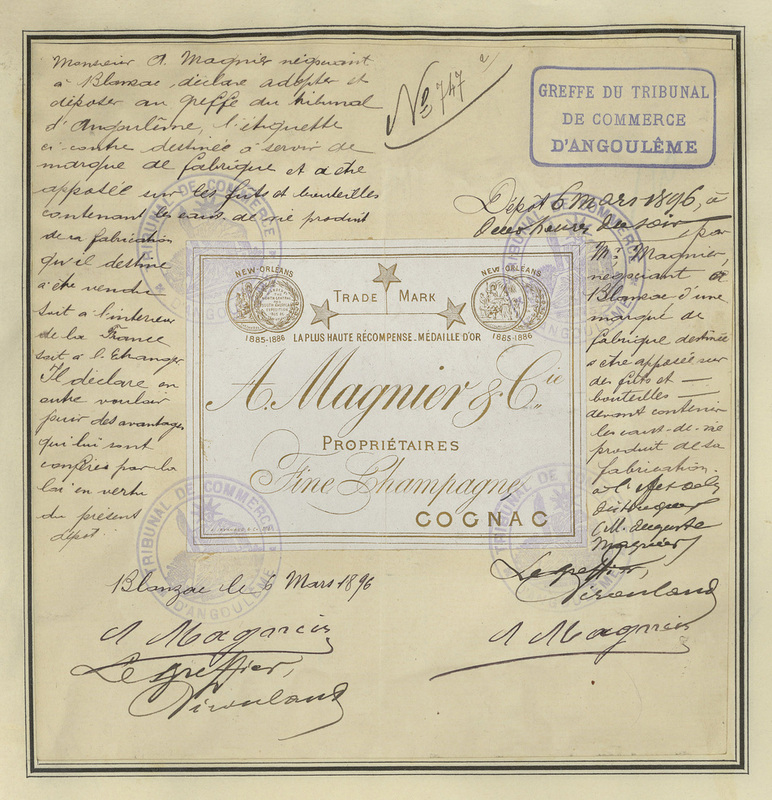 Monsieur A. Magnier négociant
à Blanzac déclare adopter et
déposer au greffe du tribunal
d'Angoulême, l'étiquette
ci-contre destinée à servir de
marque de fabrique et à être
apposée sur les futs et bouteilles
contenant les eaux-de-vie produit
de sa fabrication
qu'il destine
à être vendu
soit à l'intérieur
de la France
soit à l'Etranger
Il déclare en
outre vouloir
jouir des avantages
qui lui sont
conférés par la
loi en vertu
du présent
dépôt
Blanzac le 6 Mars 1896
A Magnier
Le greffier,
No 747
GREFFE DU TRIBUNAL
DE COMMERCE
D'ANGOULÊME
Dépôt 6 Mars 1896, à
heures du soir, par
Mr. Magnier,
négociant à
Blanzac d'une
marque de
fabrique destinée
à être apposée sur
des futs et
bouteilles
devant contenir
les eaux-de-vie
produit de sa
fabrication.
M. Auguste
Magnier
Le greffier,
A Magnier
NEW-ORLEANS
1885-1886
TRADE MARK
NEW ORLEANS
1885-1886
LA PLUS HAUTE RÉCOMPENSE. MÉDAILLE D'OR
A. Magnier & Cie
PROPRIÉTAIRES
Fine Champagne
COGNAC
TRIBUNAL DE COMMERCE
D'ANGOULÊME
TRIBUNAL DE COMMERCE
D'ANGOULÊME
TRIBUNAL DE COMMERCE
D'ANGOULÊME
TRIBUNAL DE COMMERCE
D'ANGOULÊME